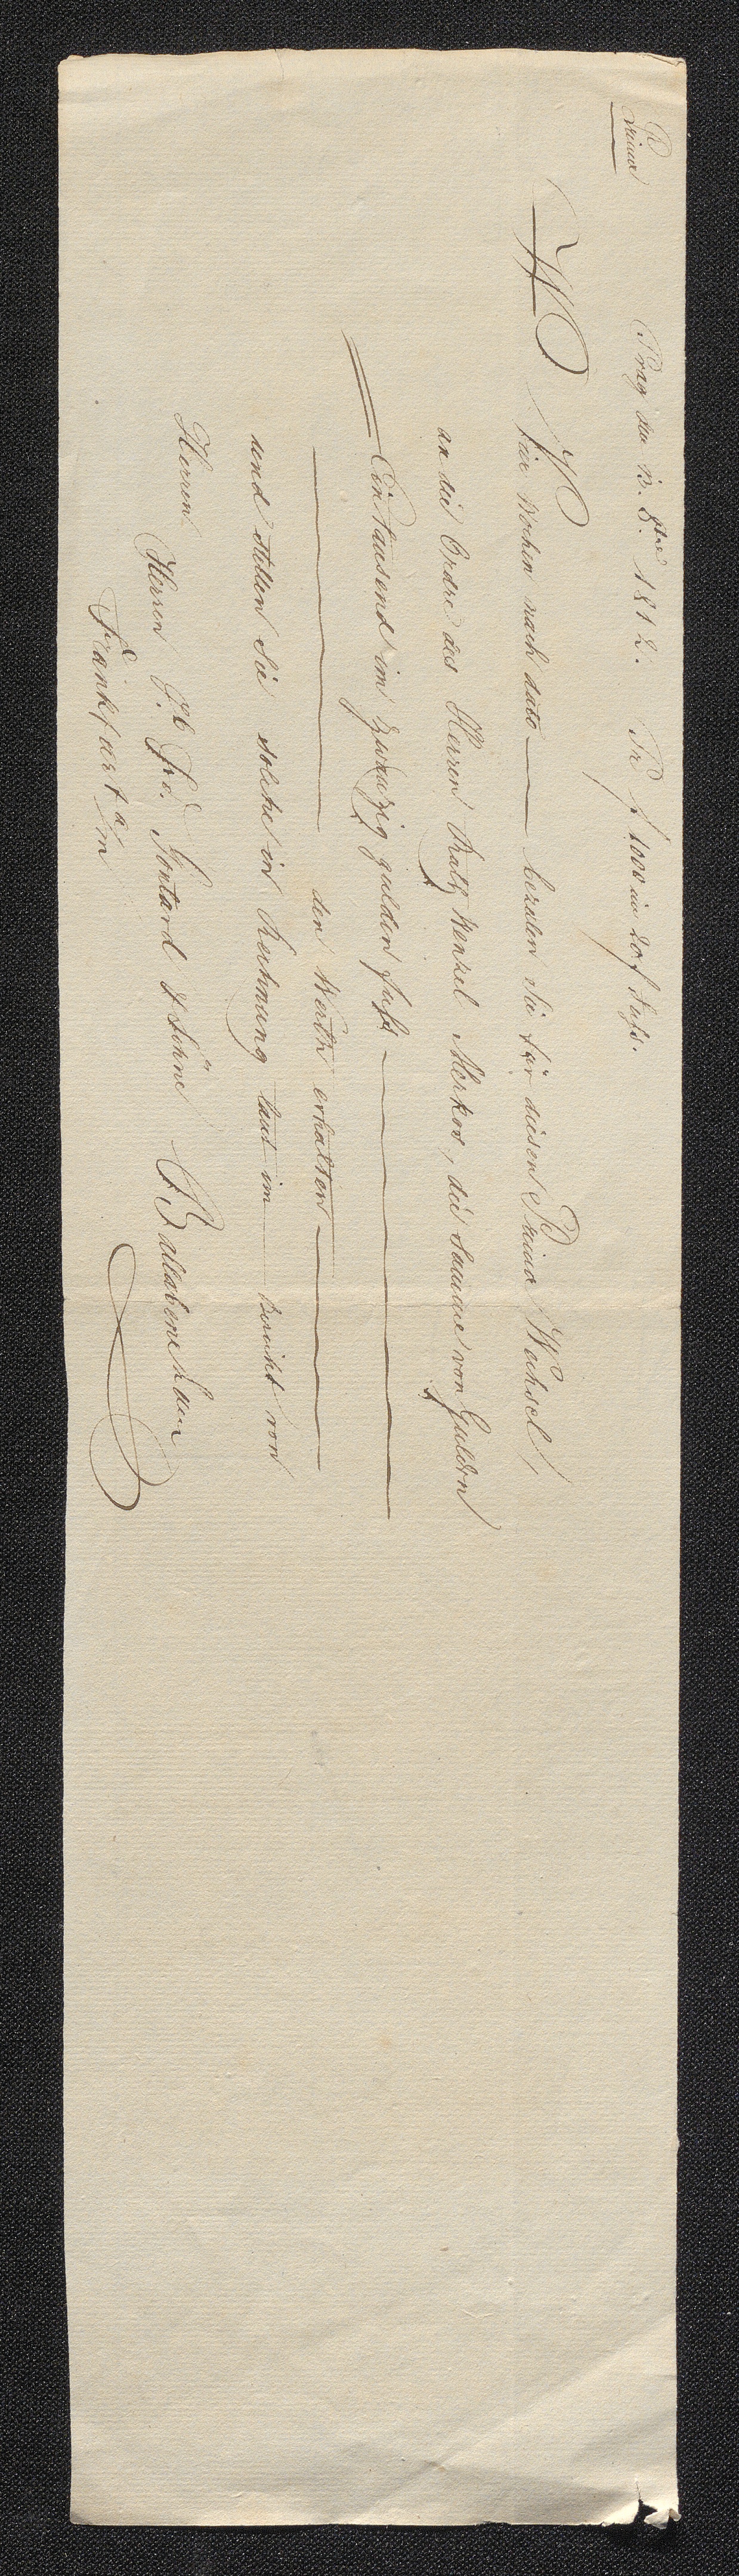 Prima
Prag den 13. 8bre 1812. Pr f 1000 in 20 f Fuß.
Vier Wochen nach dato — bezalen Sie für diesen Prima Wechsel,
an die Ordre des Herrn Wenzel die Summe von Gulden
Ein tausend im Zwanzig gulden fuß —
— den Werth erhalten —
und stellen Sie solche in Rechnung laut im — Bericht von
Herren
Herren Gontard & Söhne Ballabene
Frankfurt a/m